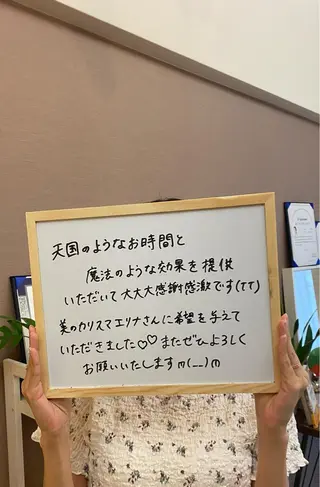 天国のようなお時間と
魔法のような効果を提供
いただいて大大大感謝感激です(TT)
美のカリスマエリナさんに希望を与えて
いただきました♡♡またぜひよろしく
お願いいたしますm(__)m